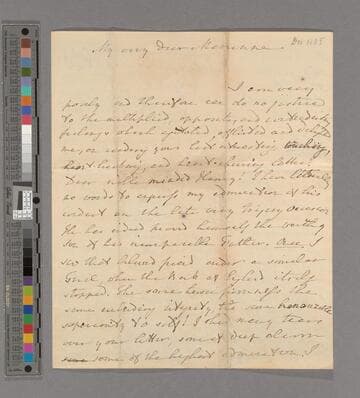 My very dear Marianne.
I am very
poorly and therefore can do no justice
to the multiplied, opposed, and contradictory
feelings which agitated, afflicted and delighted
me, on reading your last interesting, touching,
heart-breaking, and heart-cheering letter.
Dear noble minded Henry! I have literally
no words to express my admiration of his
conduct on the late very trying occasion
He has indeed proved himself the worthy
Son of his incomparable Father. Once, I
saw that beloved friend under a similar
trial, when the work at
stopped. The same heroic firmness the
same unbending integrity, the same honourable
superiority to self! I shed many tears
over your letter, some of deep concern
some of the highest admiration; I